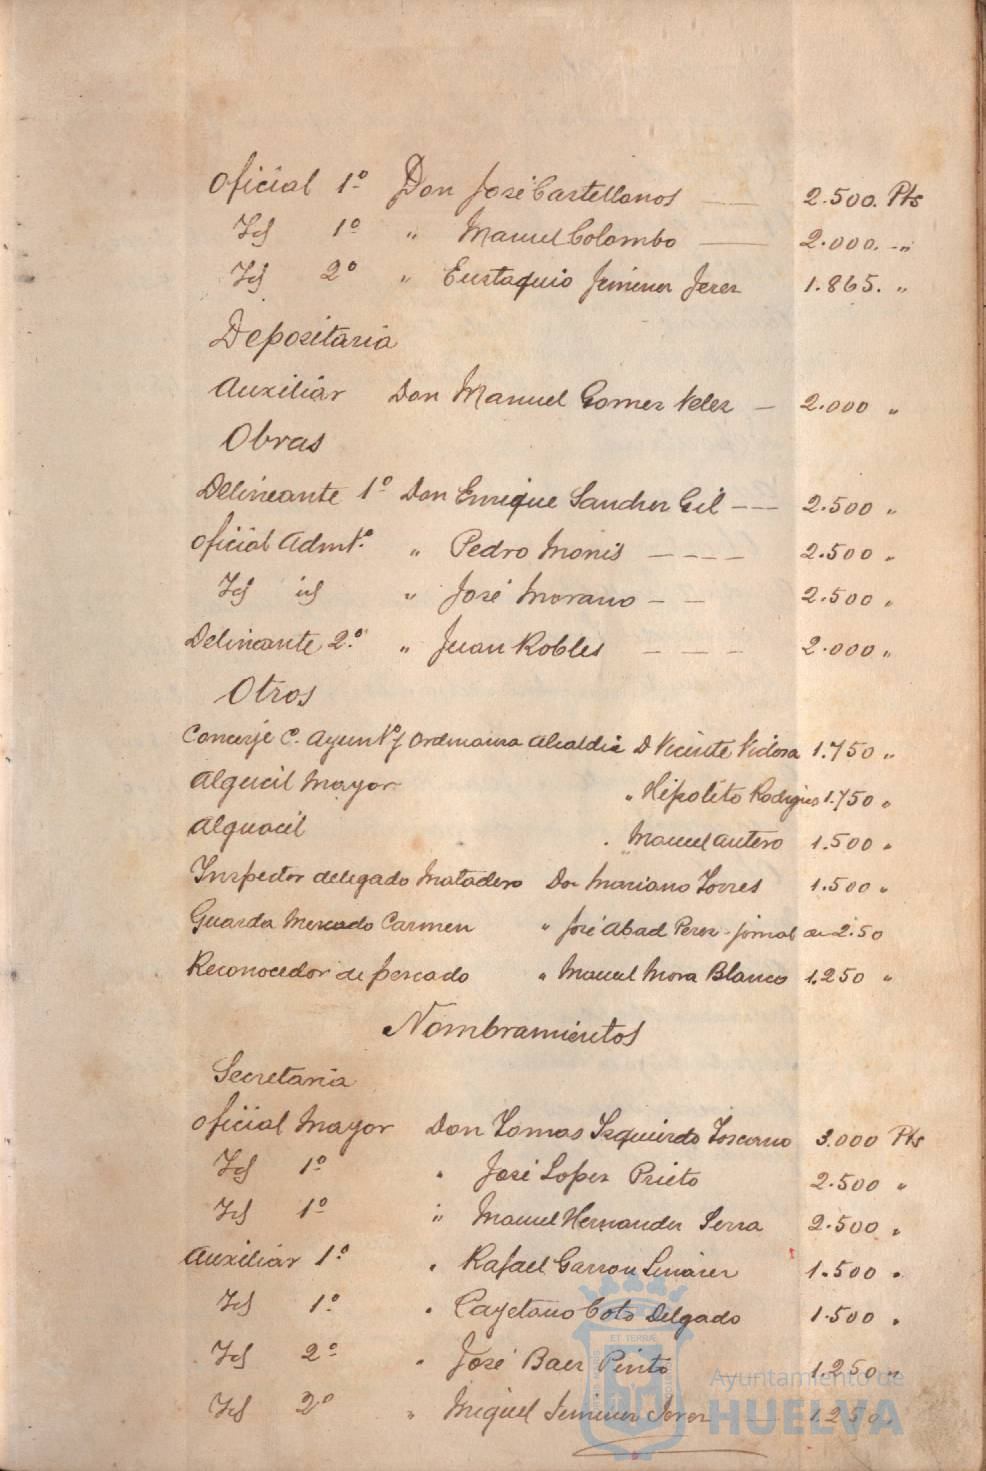 Oficial 1º Don José Castellanos —— 2.500. Pts
Id 1º " Manuel Colombo —— 2.000. - "
Id 2º " Eustaquio Jimenez Jerez 1.865. "
Depositaria
Auxiliar Don Manuel Gomez Velez — 2.000 "
Obras
Delineante 1º Don Enrique Sanchez Gil --- 2.500 "
Oficial Admtº. " Pedro Monis ---- 2.500 "
Id id " José Morano -- 2.500 "
Delineante 2.º " Juan Robles --- 2.000 "
Otros
Conserje C. Ayuntº y Ordenanza Alcaldia D Vicente Vidosa 1.750 "
Alguacil Mayor " Hipolito Rodriguez 1.750 "
Alguacil " Manuel Antero 1.500 "
Inspector delegado Matadero Don Mariano Torres 1.500 "
Guarda Mercado Carmen " José Abad Perez - jornal de 2.50
Reconocedor de pescado " Manuel Mora Blanco 1.250 "
Nombramientos
Secretaria
Oficial Mayor Don Tomas Izquierdo Toscano 3.000 Pts
Id 1º " José Lopez Prieto 2.500 "
Id 1º " Manuel Hernandez Serra 2.500 "
Auxiliar 1.º " Rafael Garzon Linares 1.500 "
Id 1º " Cayetano Coto Delgado 1.500 "
Id 2º " José Baez Pinto 1.250 "
Id 2º " Miguel Jimenez Jerez — 1.250 "
ET TERRÆ
Ayuntamiento de
HUELVA